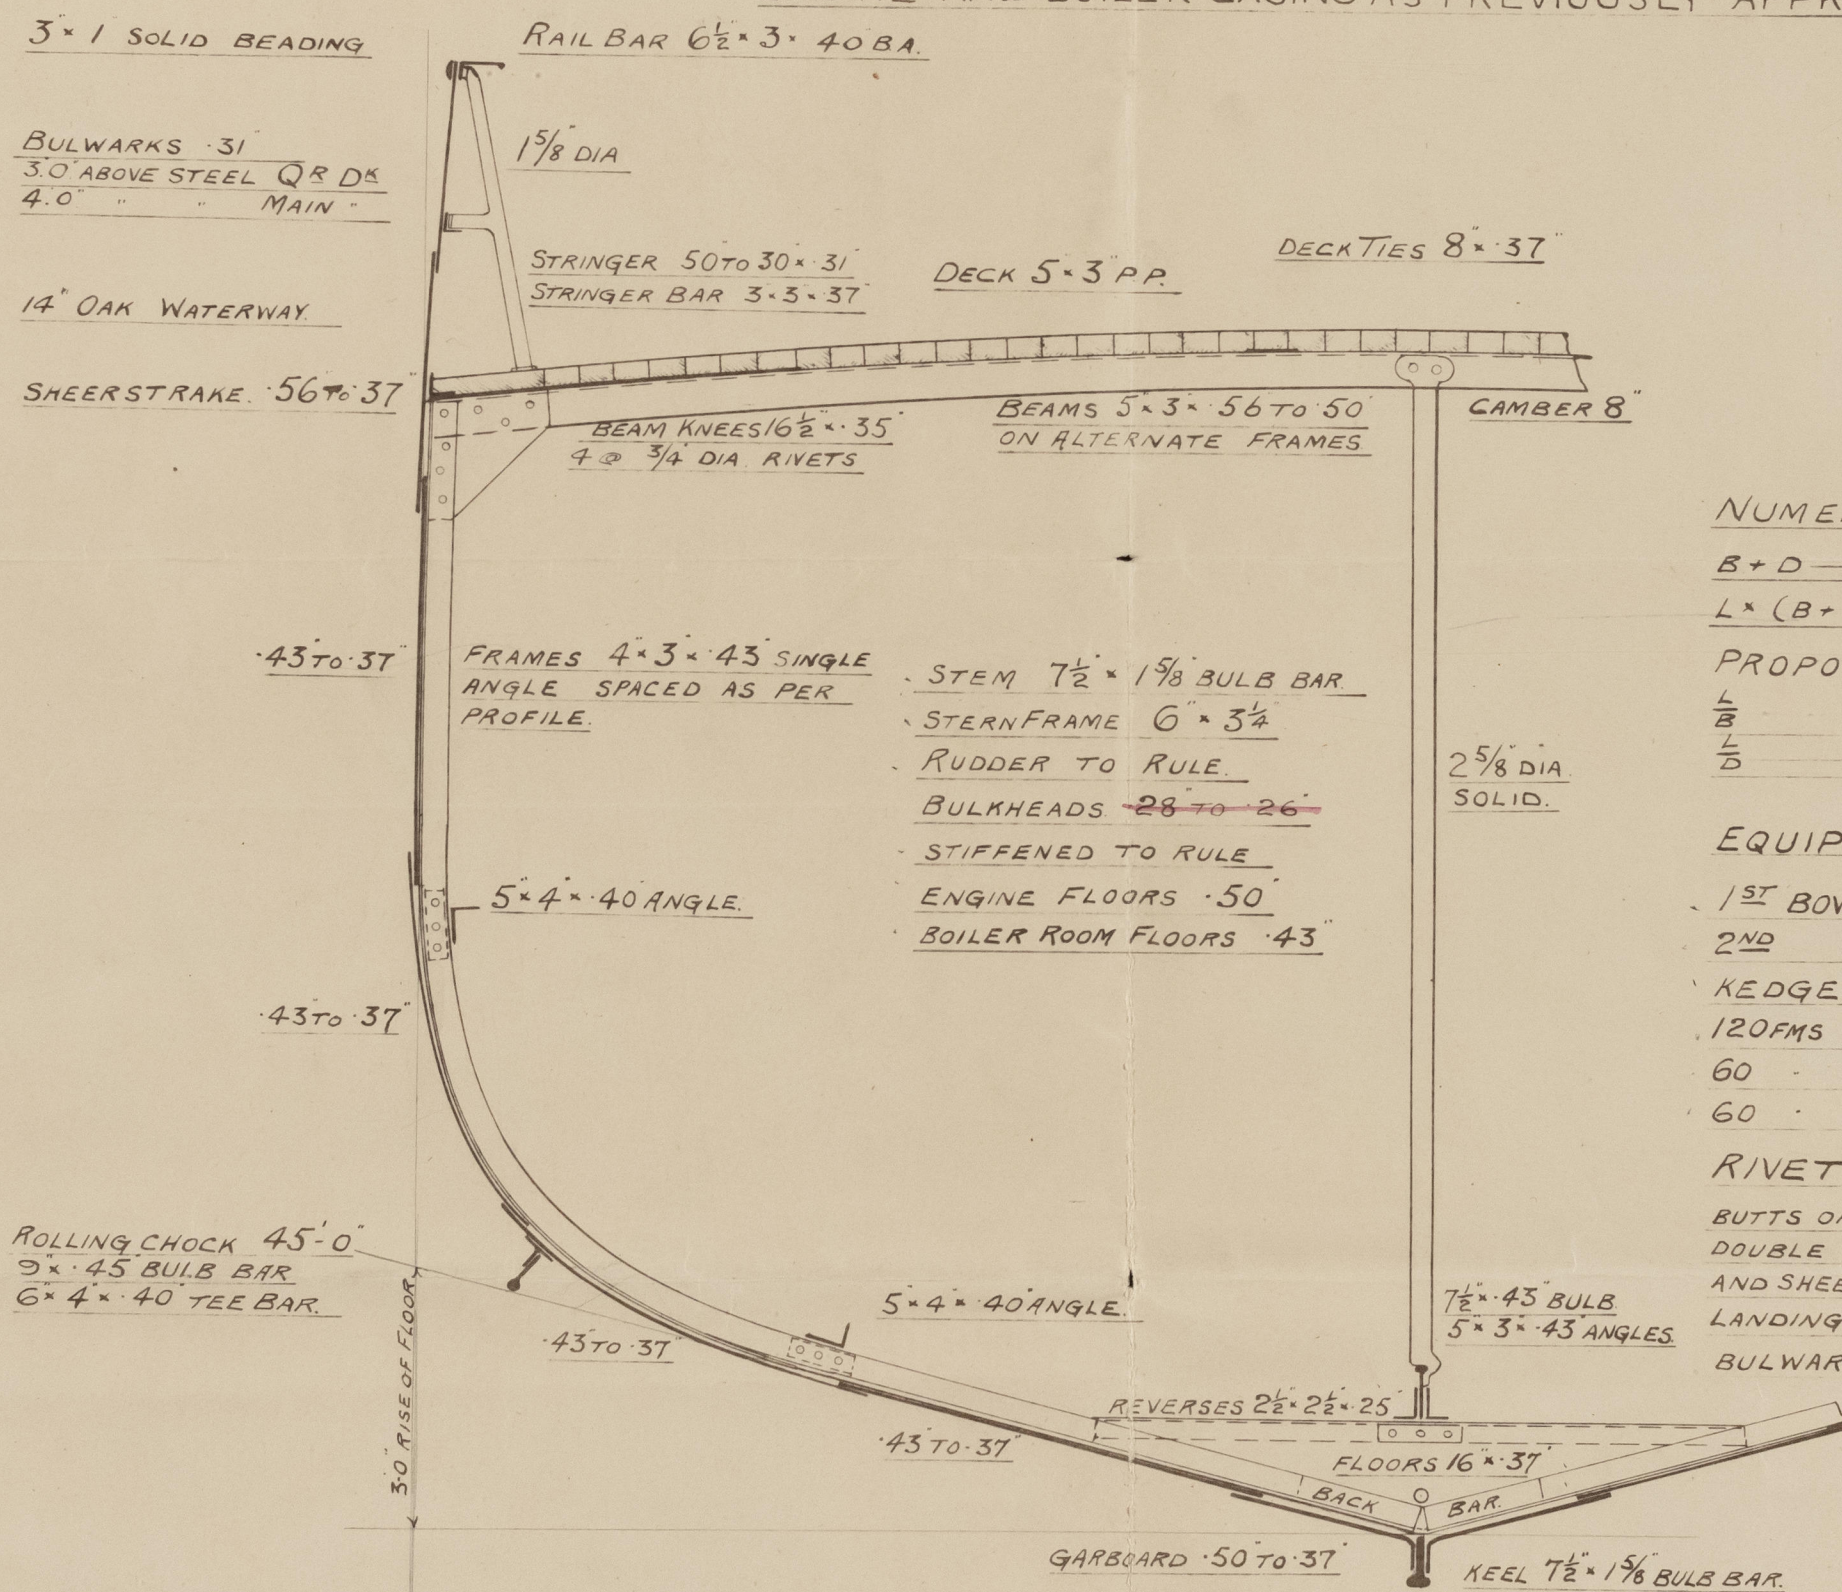 BOILER CASING AS PREVIOUSLY
3" × 1" SOLID BEADING
RAIL BAR 6½" × 3" × ·40" B.A.
BULWARKS ·31"
3'.0" ABOVE STEEL QR DK
4'.0" " " MAIN "
1 5/8" DIA
STRINGER 50" TO 30" × ·31"
STRINGER BAR 3" × 3" × ·37"
DECK 5" × 3" P.P.
DECK TIES 8" × ·37"
14" OAK WATERWAY.
SHEERSTRAKE. ·56" TO ·37"
BEAM KNEES 16½" × ·35"
4 @ ¾" DIA. RIVETS
BEAMS 5" × 3" × ·56" TO ·50"
ON ALTERNATE FRAMES
CAMBER 8"
·43" TO ·37"
FRAMES 4" × 3" × ·43" SINGLE
ANGLE SPACED AS PER
PROFILE.
STEM 7½" × 1 5/8" BULB BAR.
STERNFRAME 6" × 3¼"
RUDDER TO RULE.
BULKHEADS ·28" TO ·26"
STIFFENED TO RULE
ENGINE FLOORS ·50"
BOILER ROOM FLOORS ·43"
2 5/8" DIA.
SOLID.
5" × 4" × ·40" ANGLE.
·43" TO ·37"
ROLLING CHOCK 45'-0"
9" × ·45" BULB BAR
6" × 4" × ·40" TEE BAR.
3'·0" RISE OF FLOOR
·43" TO ·37"
5" × 4" × ·40" ANGLE.
7½" × ·43" BULB
5" × 3" × ·43" ANGLES.
REVERSES 2½" × 2½" × ·25"
·43" TO ·37"
FLOORS 16" × ·37"
BACK BAR.
GARBOARD ·50" TO ·37"
KEEL 7½" × 1 5/8" BULB BAR.
B + D
L × (B +
L/B
L/D
1ST
2ND
KEDGE
120 FMS
60 "
60 "
BUTTS
DOUBLE
LANDING